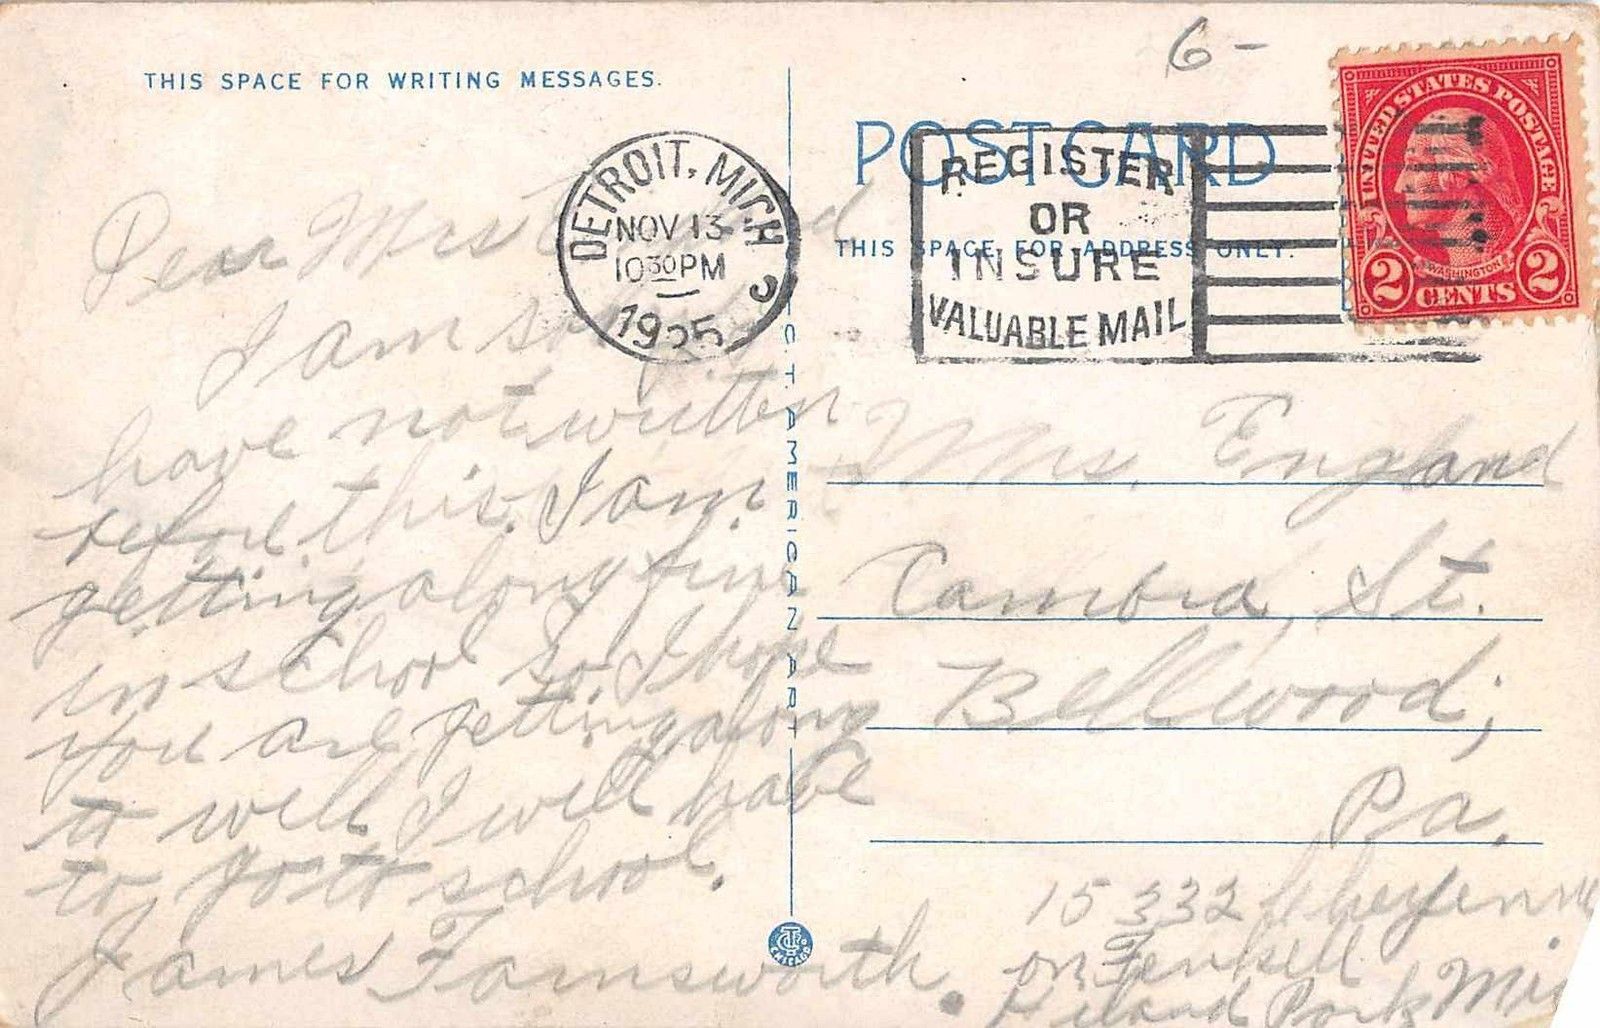 THIS SPACE FOR WRITING MESSAGES.
Dear Mrs England
I am sorry I
have not written
before this. I am
getting along fine
in school so I hope
you are getting along
to well I will have
to go to school.
James Farnsworth.
C.T. AMERICAN ART
CHICAGO
6-
POST CARD
THIS SPACE FOR ADDRESS ONLY.
DETROIT, MICH
NOV 13
10 30 PM
1925
REGISTER
OR
INSURE
VALUABLE MAIL
UNITED STATES POSTAGE
WASHINGTON
2 CENTS 2
Mrs. England
Cambra, St.
Bellwood,
Pa.
15332 Cheyenne
on Fenkell
Park Mi